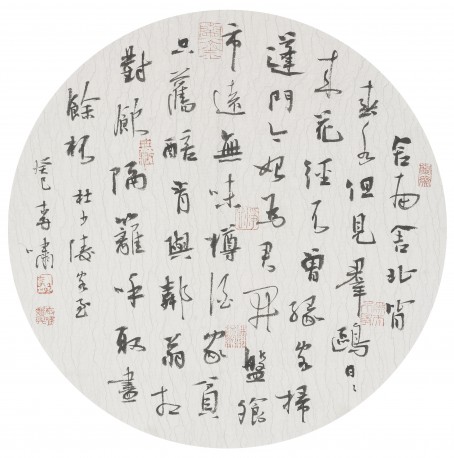 舍南舍北皆
春水但見羣鷗日〻
來花徑不曾緣客掃
蓬門今始為君開盤飧
市遠無味樽酒家貧
只舊醅肯與鄰翁相
對飲隔籬呼取盡
餘杯 杜少陵客至
癸巳 嘯